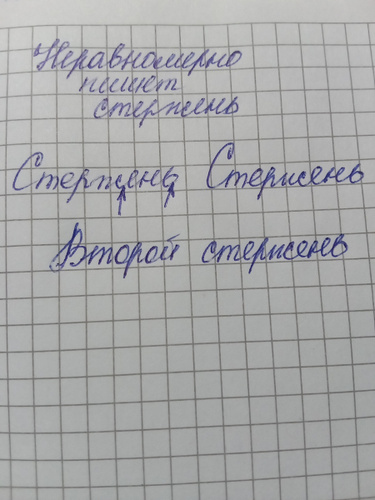 Неравномерно
пишет
стержень
Стержень Стержень
Второй стержень